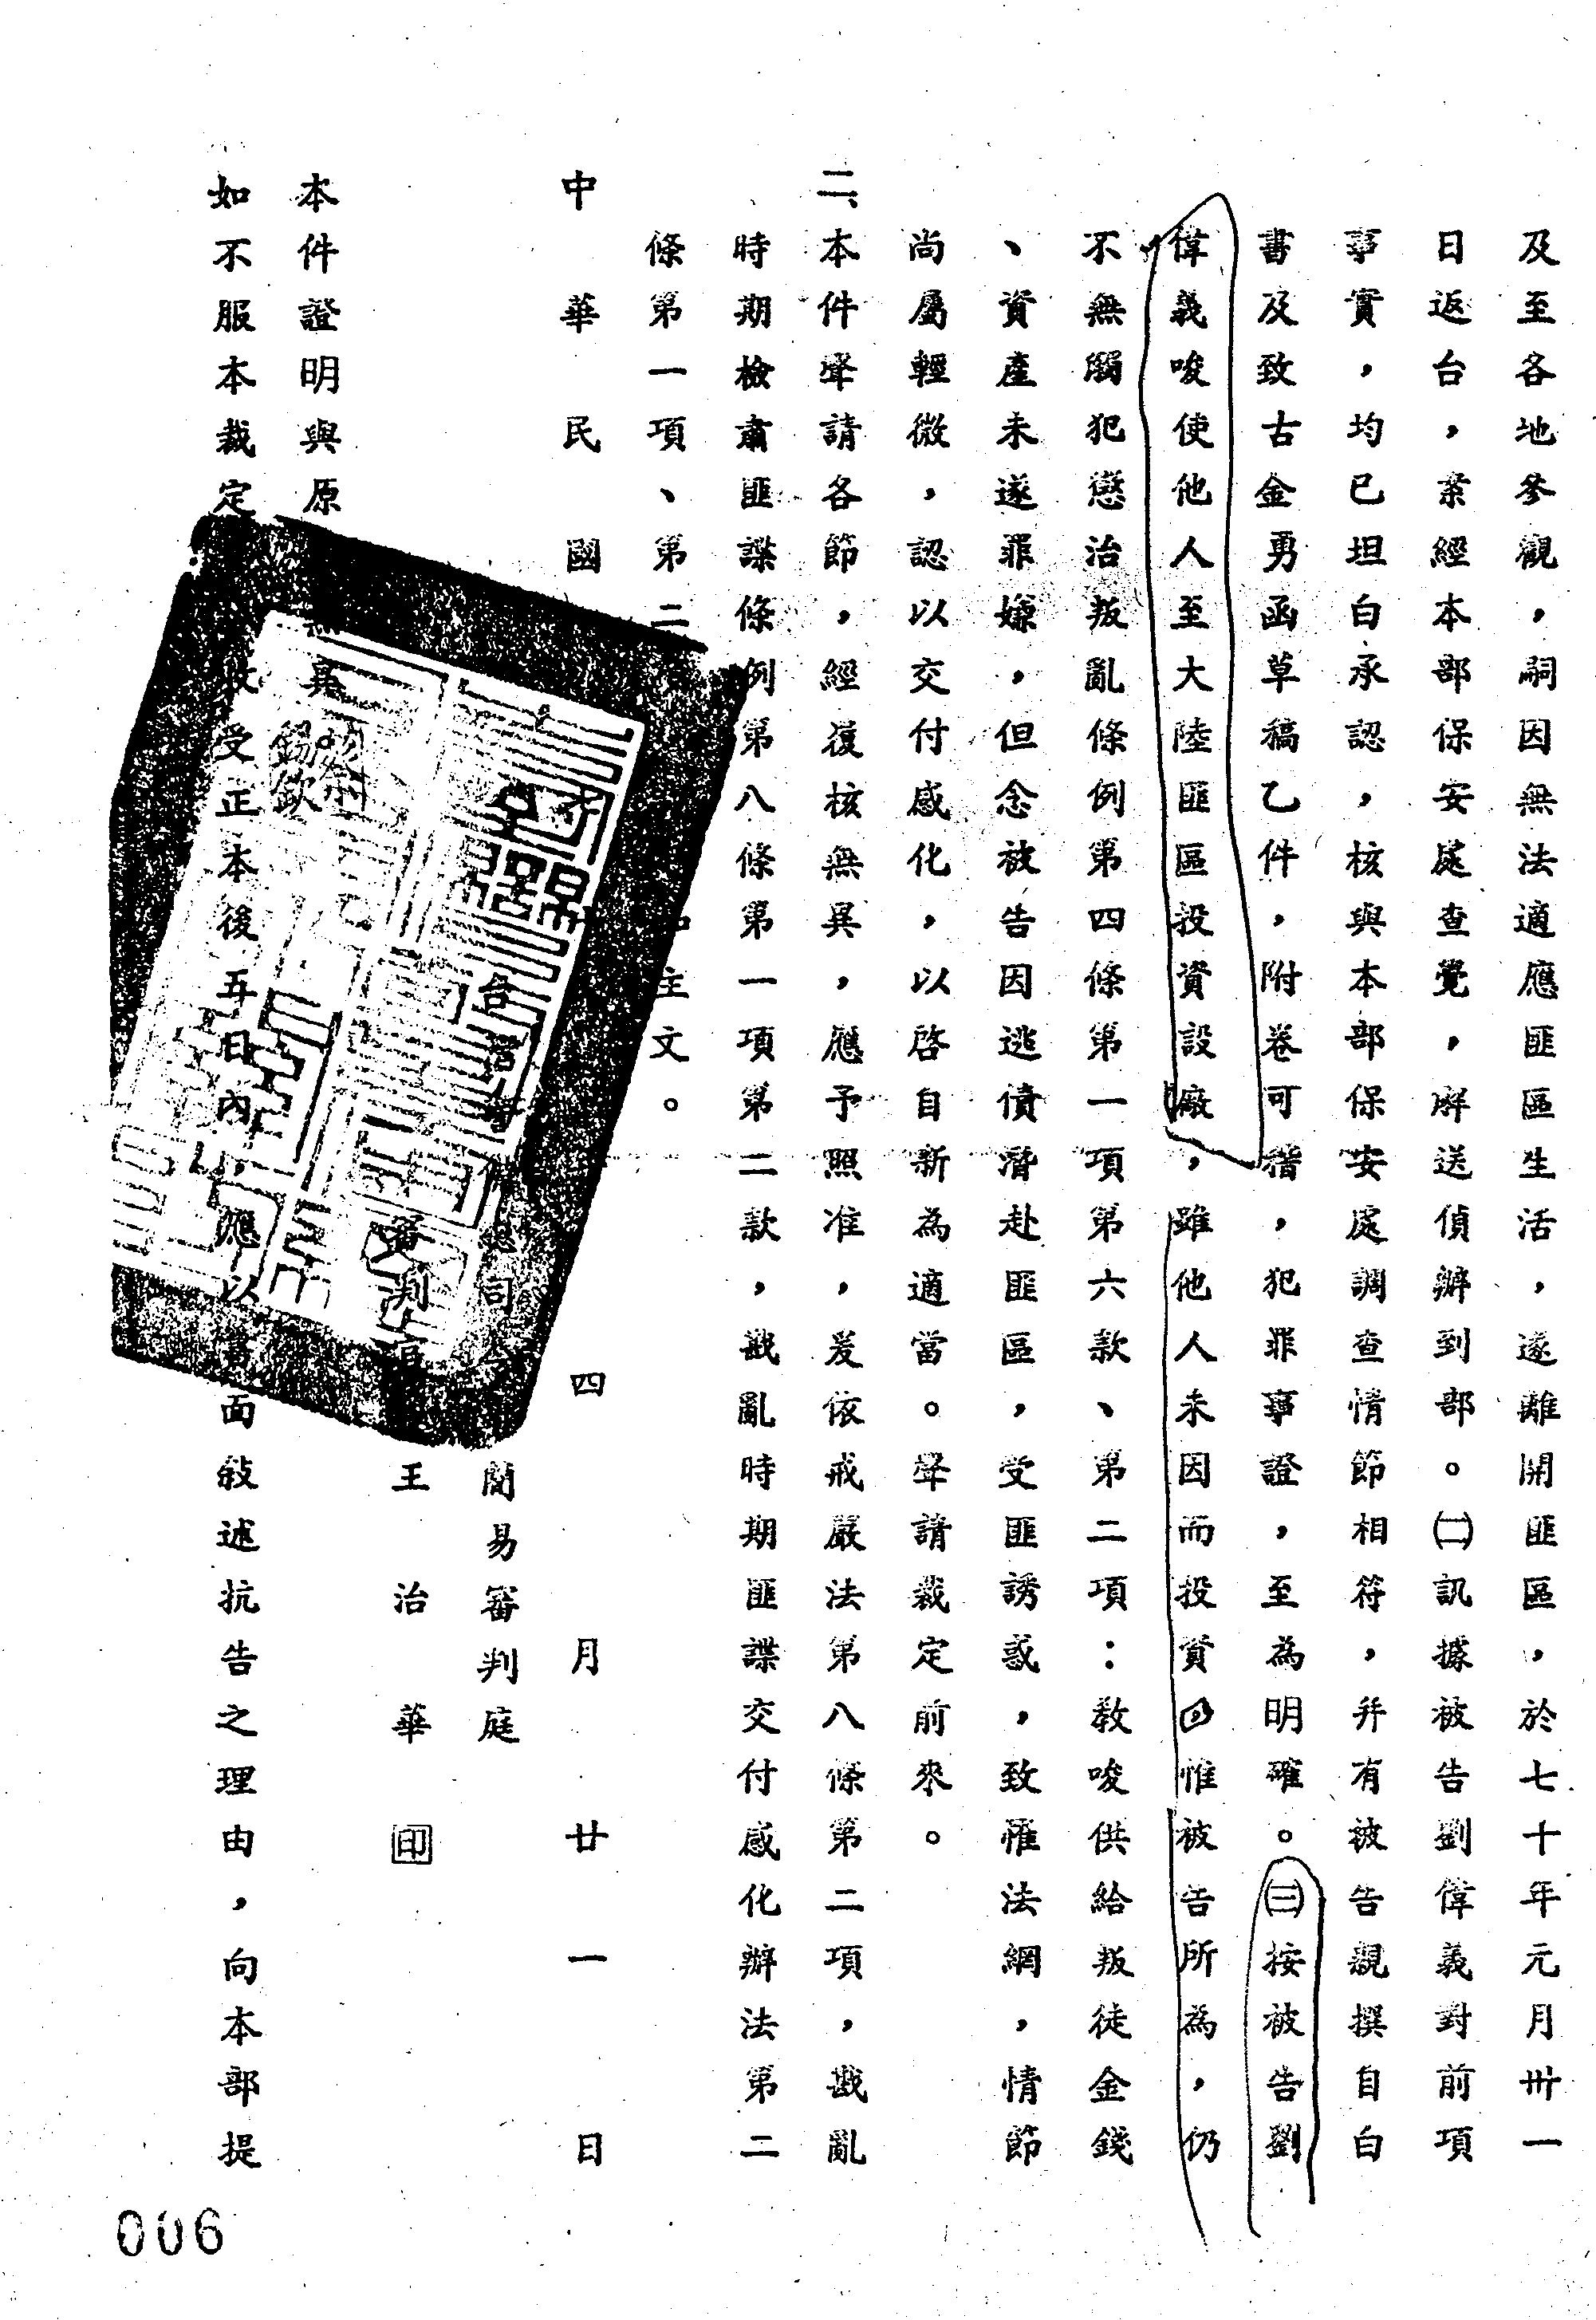 及至各地參觀，嗣因無法適應匪區生活，遂離開匪區，於七十年元月卅一
日返台，案經本部保安處查覺，解送偵辦到部。㈡訊據被告劉偉義對前項
事實，均已坦白承認，核與本部保安處調查情節相符，幷有被告親撰自白
書及致古金勇函草稿乙件，附卷可稽，犯罪事證，至為明確。㈢按被告劉
偉義唆使他人至大陸匪區投資設廠，雖他人未因而投資，惟被告所為，仍
不無觸犯懲治叛亂條例第四條第一項第六款、第二項：教唆供給叛徒金錢
、資產未遂罪嫌，但念被告因逃債潛赴匪區，受匪誘惑，致罹法網，情節
尚屬輕微，認以交付感化，以啓自新為適當。聲請裁定前來。
二、本件聲請各節，經復核無異，應予照准，爰依戒嚴法第八條第二項，戡亂
時期檢肅匪諜條例第八條第一項第二款，戡亂時期匪諜交付感化辦法第二
條第一項、第二主文。
中華民國四月廿一日
簡易審判庭
審判官王治華印
本件證明與原
如不服本裁定收受正本後五日內，應以書面敍述抗告之理由，向本部提
006